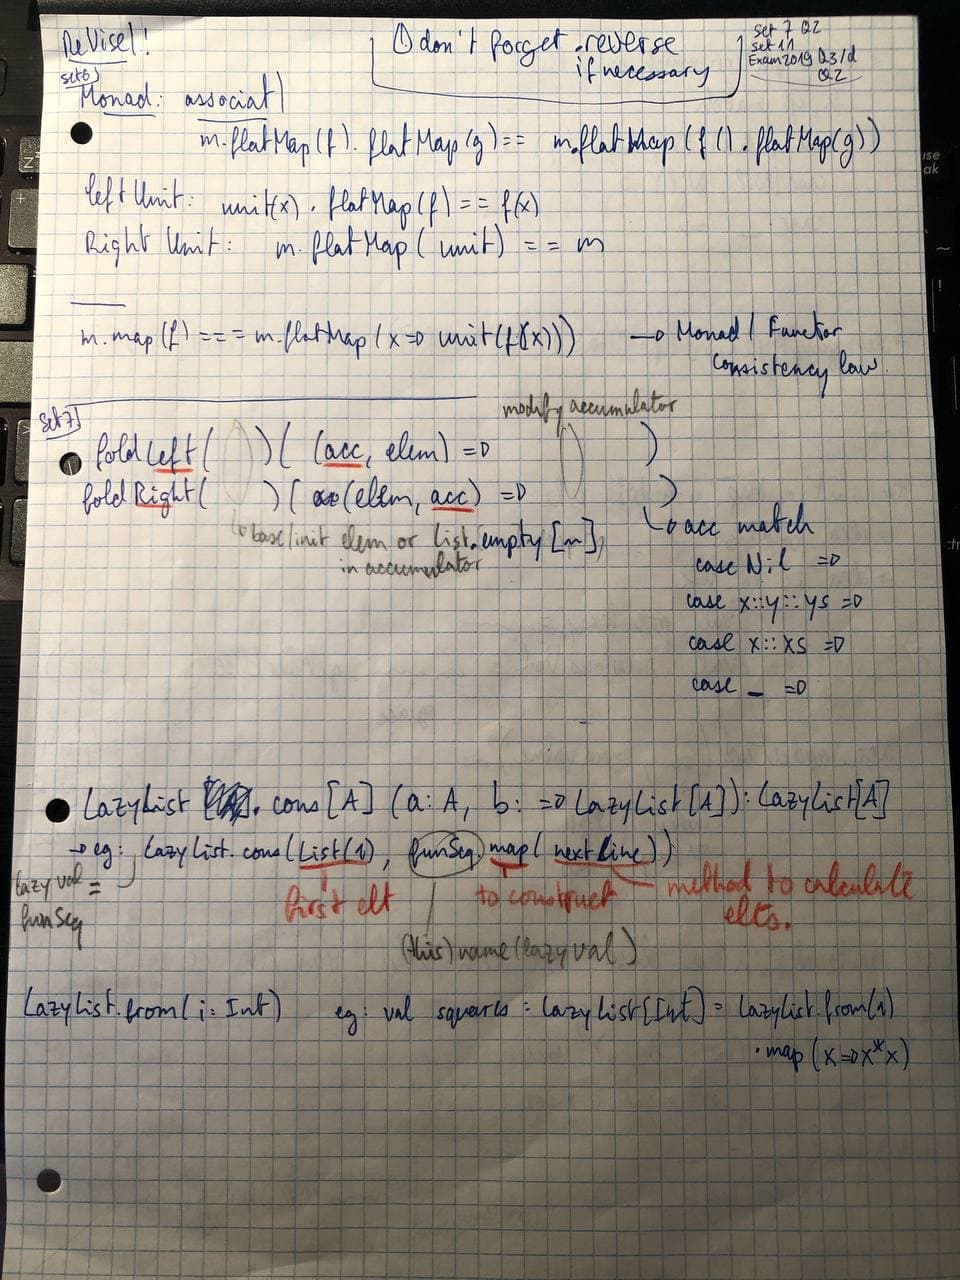 ReVise!!
① don't forget .reverse
if necessary
Set 7 Q2
Set 11
Exam2019 Q3/d
Q2
set6)
Monad: associat
m.flatMap(f).flatMap(g) == m.flatMap(f().flatMap(g))
left Unit: unit(x).flatMap(f) == f(x)
Right Unit: m.flatMap(unit) == m
m.map(f) === m.flatMap(x=> unit(f(x))) → Monad / Functor
consistency law.
Set 7)
modify accumulator
foldLeft( )( (acc, elem) => )
foldRight( )( (elem, acc) => )
↳ base/init elem or List.empty[n],
in accumulator
↳ acc match
case Nil =>
case x::y::ys =>
case x::xs =>
case _ =>
LazyList . cons[A] (a: A, b: => LazyList[A]): LazyList[A]
→ eg: LazyList.cons(List(1), funSeq.map(nextLine))
lazy val =
funSeq
first elt
to construct
method to calculate
elts.
(this) name (lazy val)
LazyList.from(i: Int) eg: val squares : LazyList[Int] = LazyList.from(1)
.map(x=>x*x)